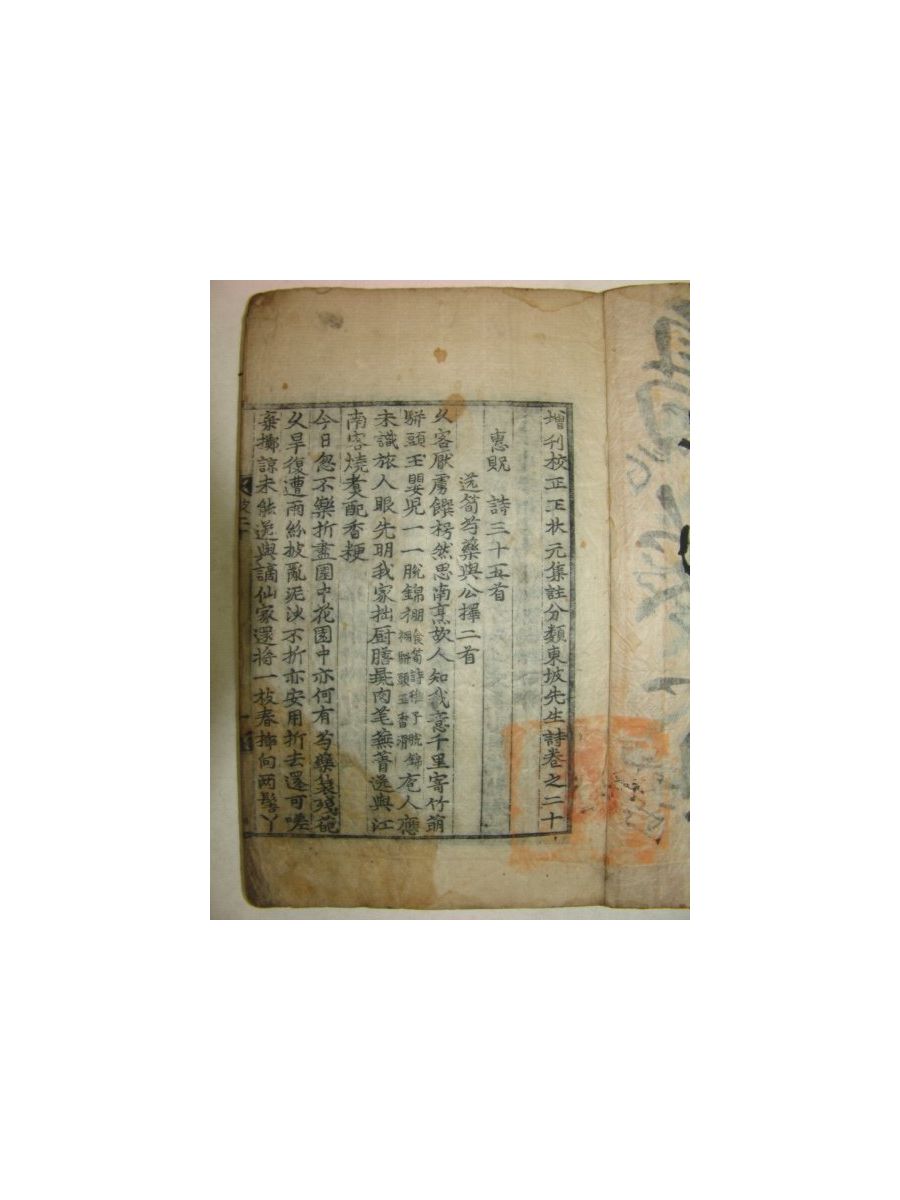 增刊校正王狀元集註分類東坡先生詩卷之二十
惠貺 詩三十五首
送筍芍藥與公擇二首
久客厭虜饌枵然思南烹故人知我意千里寄竹萌
駢頭玉嬰兒一一脫錦䙀食筍詩稚子脫錦䙀駢頭玉香滑庖人應
未識旅人眼先明我家拙厨膳彘肉芼蕪菁送與江
南客燒煑配香粳
今日忽不樂折盡園中花園中亦何有芍藥裊殘葩
久旱復遭雨紛披亂泥沙不折亦安用折去還可嗟
棄擲諒未能送與謫仙家還將一枝春揷向兩髻丫